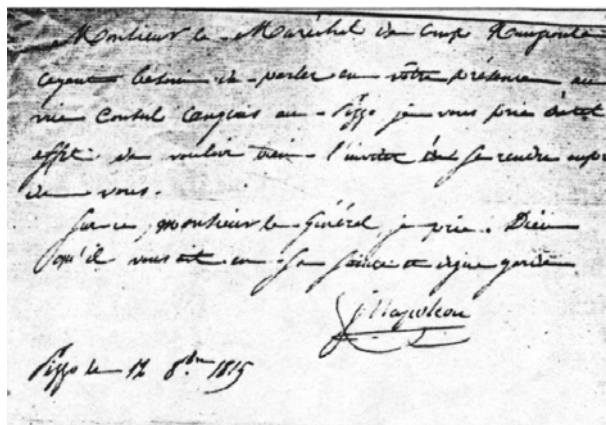 Monsieur le Maréchal de Camp
ayant besoin de parler en vôtre présence au
vice Consul anglais au Pizzo je vous prie à cet
effet de vouloir bien l'inviter à se rendre aupr
de vous.
Sur ce, monsieur le Général, je prie Dieu
qu'il vous ait en sa sainte et digne garde
J. Napoléon
Pizzo le 8bre 1815